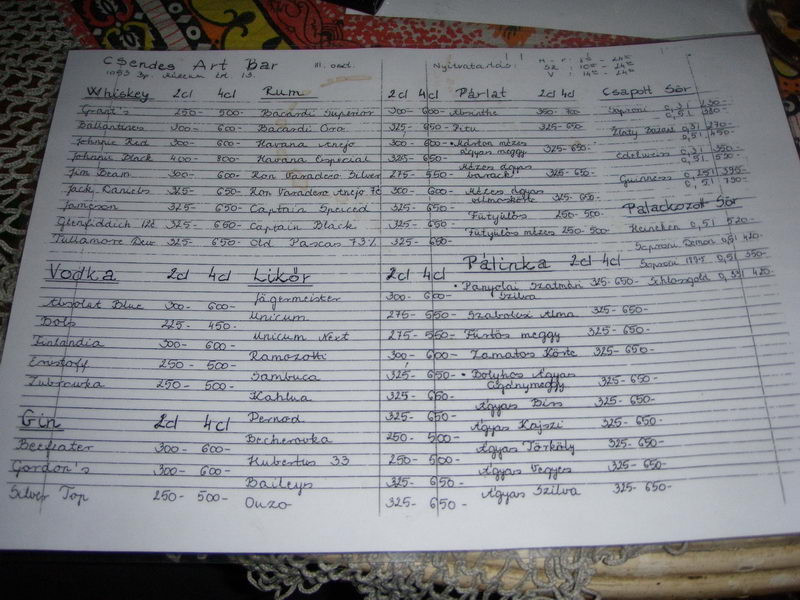 Csendes Art Bar III. oszt. Nyitvatartás:
Whiskey 2cl 4cl
Grant's 250- 500-
Ballantines 300- 600-
Johnnie Red 300- 600-
Johnnie Black 400- 800-
Jim Beam 300- 600-
Jack Daniels 325- 650-
Jameson 325- 650-
Glenfiddich 325- 650-
Tullamore Dew 325- 650-
Vodka 2cl 4cl
Absolut Blue 300- 600-
Bols 225- 450-
Finlandia 300- 600-
250- 500-
Zubrowka 250- 500-
Gin 2cl 4cl
Beefeater 300- 600-
Gordon's 300- 600-
Silver Top 250- 500-
Rum 2cl 4cl
Bacardi Superior 300- 600-
Bacardi Oro 325- 650-
Havana Anejo 300- 600-
Havana Especial 325- 650-
Ron Varadero Silver 275- 550-
Ron Varadero Anejo 300- 600-
Captain Speiced 325- 650-
Captain Black 325- 650-
Old Pascas 73% 325- 650-
Likőr 2cl 4cl
Jägermeister 300- 600-
Unicum 275- 550-
Unicum Next 275- 550-
Ramozotti 300- 600-
Sambuca 325- 650-
Kahlua 325- 650-
Pernod 325- 650-
Becherovka 250- 500-
Hubertus 33 250- 500-
Baileys 325- 650-
Ouzo 325- 650-
Párlat 2cl 4cl
Absinthe 350- 700-
Pitu 325- 650-
Márton mézes
ágyas meggy 325- 650-
Mézes ágyas
barack 325- 650-
Mézes ágyas
vilmoskörte 325- 650-
Fütyülős 250- 500-
Fütyülős mézes 250- 500-
Pálinka 2cl 4cl
Panyolai Szatmári
Szilva 325- 650-
Szabolcsi Alma 325- 650-
Fürtös meggy 325- 650-
Zamatos Körte 325- 650-
Bolyhos Ágyas
Cigánymeggy 325- 650-
Ágyas Birs 325- 650-
Ágyas Kajszi 325- 650-
Ágyas Törköly 325- 650-
Ágyas Vegyes 325- 650-
Ágyas Szilva 325- 650-
Csapolt Sör
Soproni 0,3l
0,5l
Zlaty Bazant 0,3l 270-
0,5l 450-
Edelweiss 0,3l 350-
0,5l
Guinness 0,25l 395-
0,5l 790-
Palackozott Sör
Heineken 0,5l 520-
Soproni Démon 0,5l 420-
Soproni 1895 0,5l 350-
Schlossgold 0,33l 420-